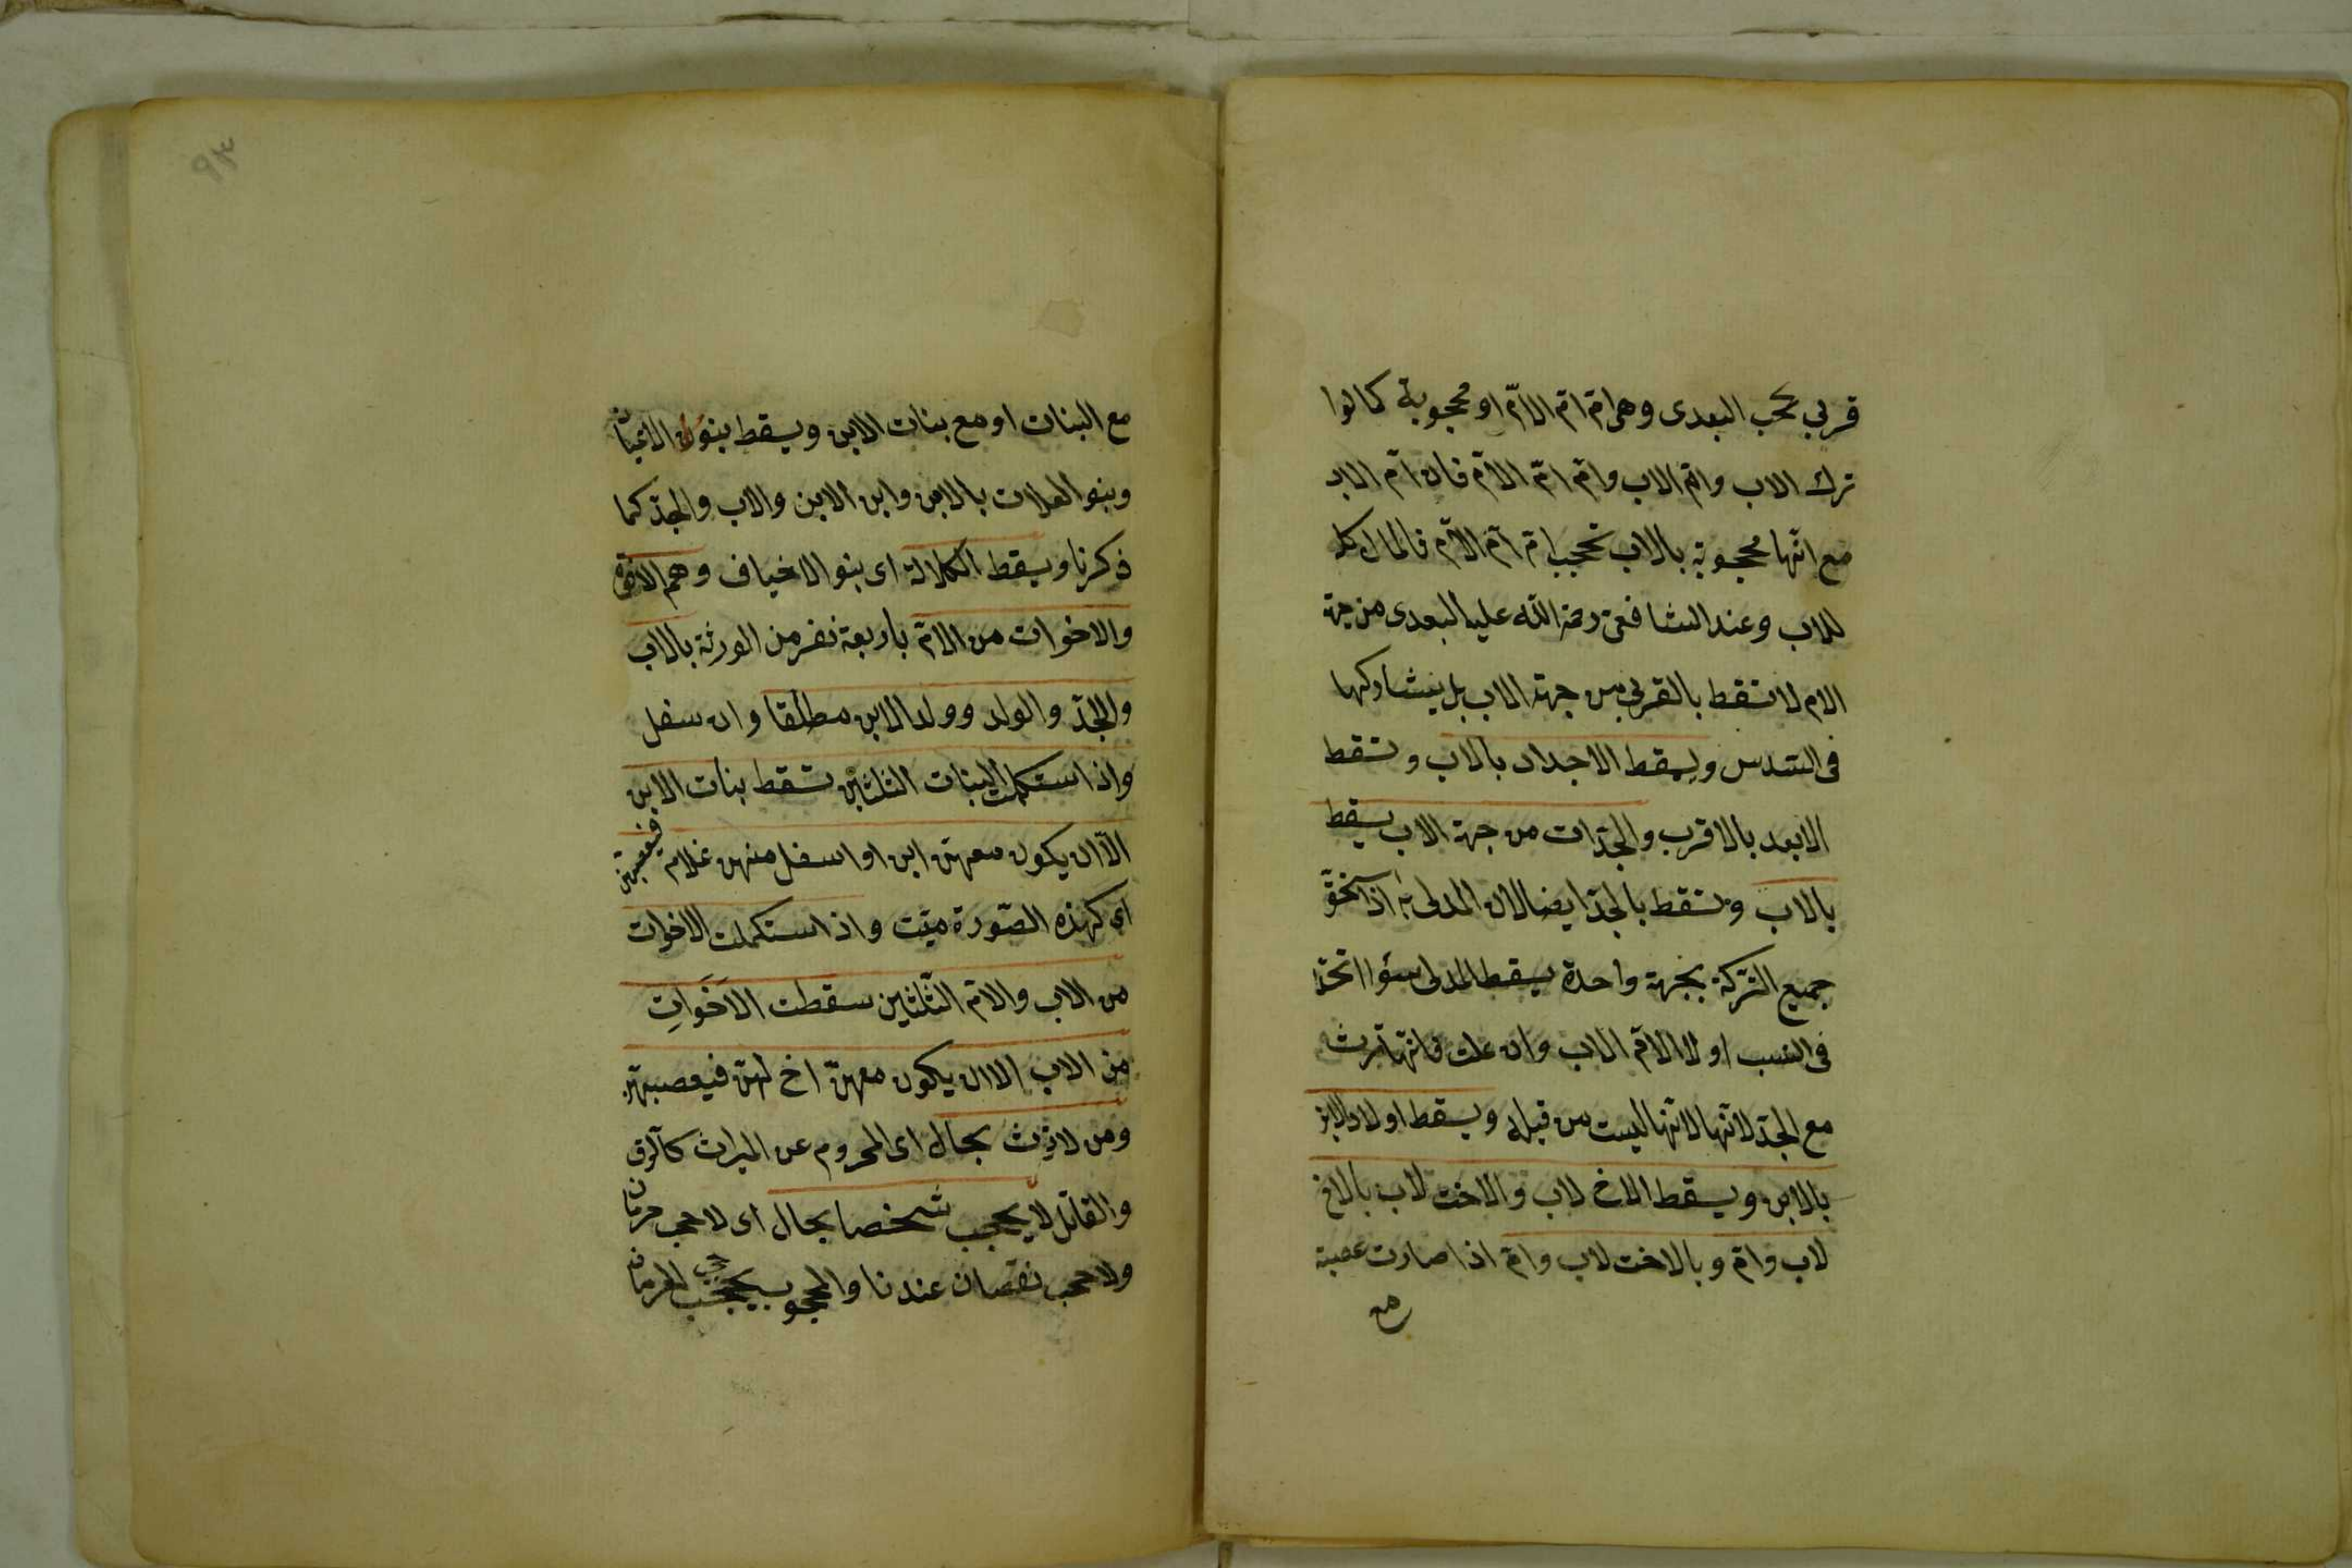 قربى تحجب البعدى وهى ام ام الامّ او محجوبة كما لو
ترك الاب وام الاب وام امّ الامّ فان امّ الاب
مع انّها محجوبة بالاب تحجب امّ امّ الامّ فالمال كله
للاب وعند الشافعى رحمة الله عليه البعدى من جهة
الام لا تسقط بالقربى من جهة الاب بل يشاركها
فى السّدس ويسقط الاجداد بالاب وتسقط
الابعد بالاقرب والجدّات من جهة الاب يسقط
بالاب وتسقط بالجدّ ايضا لان المدلى به اذا استحقّ
جميع التركة بجهة واحدة يسقط المدلى سواء اتّحدا
فى النسب او لا الا امّ الاب وان علت فانها ترث
مع الجدّ لانّها لانّها ليست من قبله ويسقط اولاد الابن
بالابن ويسقط الاخ لاب والاخت لاب بالاخ
لاب وامّ وبالاخت لاب وامّ اذا صارت عصبة
مع
٩٣
مع البنات او مع بنات الابن ويسقط بنو الاعيان
وبنو العلات بالابن وابن الابن والاب والجدّ كما
ذكرنا ويسقط الكلالة اى بنو الاخياف وهم الاخوة
والاخوات من الامّ باربعة نفر من الورثة بالاب
والجدّ والولد وولد الابن مطلقا وان سفل
واذا استكملت البنات الثلثين تسقط بنات الابن
الّا ان يكون معهنّ ابن او اسفل منهن غلام فيعصبهنّ
اى كهذه الصّورة ميّت واذا ستكملت الاخوات
من الاب والامّ الثّلثين سقطت الاخَوَاتِ
من الاب الا ان يكون معهنّ اخ لهنّ فيعصبهنّ
ومن لا يرث بحال اى المحروم عن الميراث كالرق
والقاتل لا يحجب شخصا بحال اى لا حجب حرمان
ولا حجب نقصان عندنا والمحجوب يحجب حجب الحرمان